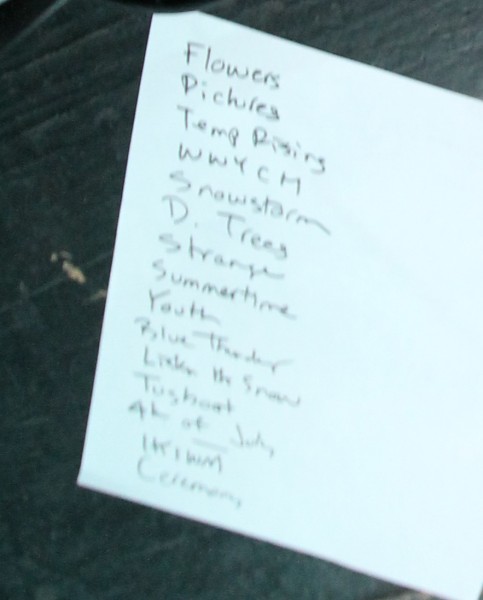 Flowers
Pictures
Temp Rising
WWYCH
Snowstorm
D. Trees
Strange
Summertime
Youth
Blue Thunder
Listen the Snow
Tugboat
4th of July
IKIWM
Ceremony